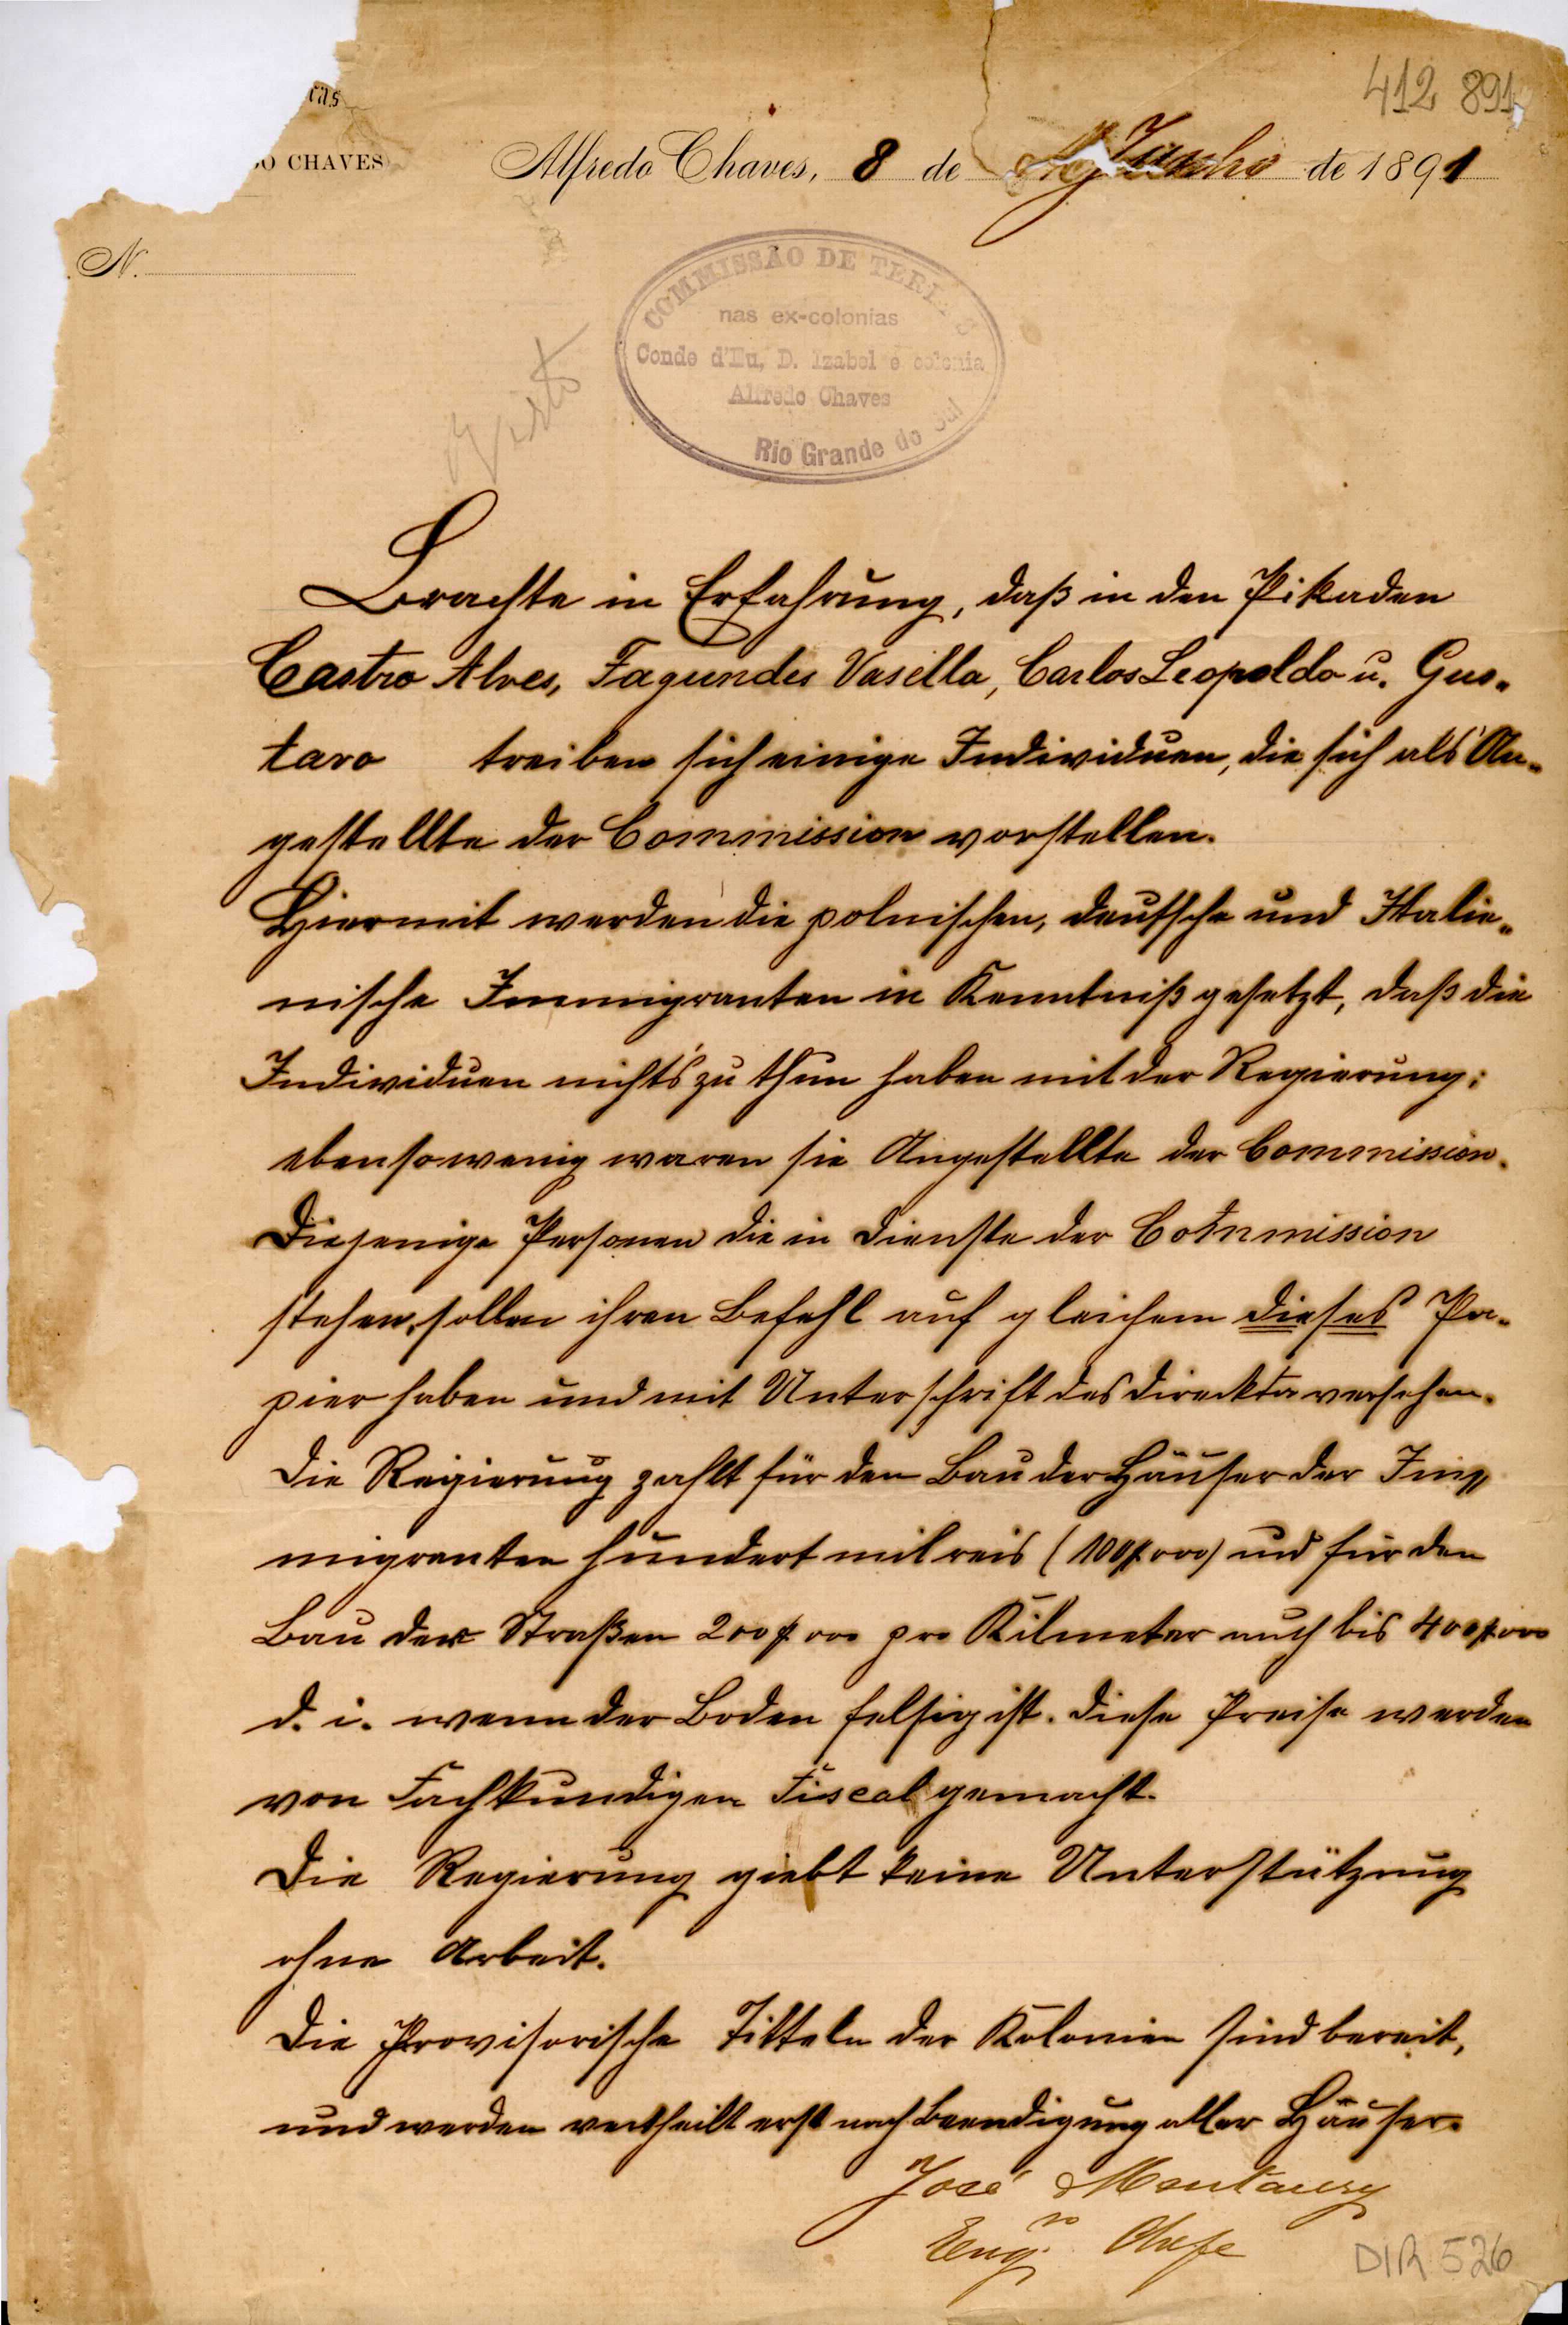 412 891
ras
DO CHAVES
Alfredo Chaves, 8 de Junho de 1891
N.
COMMISSÃO DE TERRAS
nas ex-colonias
Conde d'Eu, D. Izabel e colonia
Alfredo Chaves
Rio Grande do Sul
Visto
Brachte in Erfahrung, daß in den Pikaden
Castro Alves, Fagundes Vasella, Carlos Leopoldo u. Gus-
tavo treiben sich einige Individuen, die sich als An-
gestellte der Commission vorstellen.
Hiermit werden die polnischen, deutsche und Italie-
nische Immigranten in Kenntniß gesetzt, daß die
Individuen nichts zu thun haben mit der Regierung;
ebensowenig waren sie Angestellte der Commission.
Diejenige Personen die in Dienste der Commission
stehen, sollen ihren Befehl auf gleichem dieses Pa-
pier haben und mit Unterschrift des Direckta versehen.
Die Regierung zahlt für den Bau der Häuser der Im-
migranten hundert milreis (100$000) und für den
Bau der Straßen 200$000 pro Kilmeter auch bis 400$000
d. i. wenn der Boden felsig ist. Diese Preise werden
von Fachkundigen Fiscal gemacht.
Die Regierung giebt keine Unterstützung
ohne Arbeit.
Die Provisorische Titteln der Kolonien sind bereit,
und werden vertheilt erst nach Beendigung aller Häuser.
José Montaury
Eng.ro Chefe
DIR 526